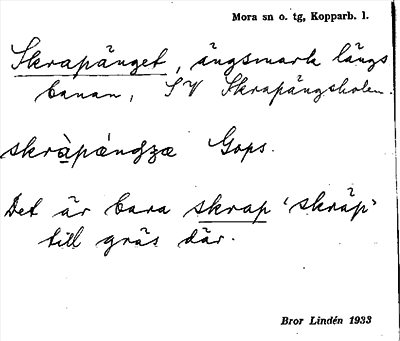 Mora sn o. tg, Kopparb. l.
Skrapänget, ängsmark längs
banan, SV Skrapängsholen.
skràpæ̀ndʒæ Gops.
Det är bara skrap ‘skräp’
till gräs där.
Bror Lindén 1933